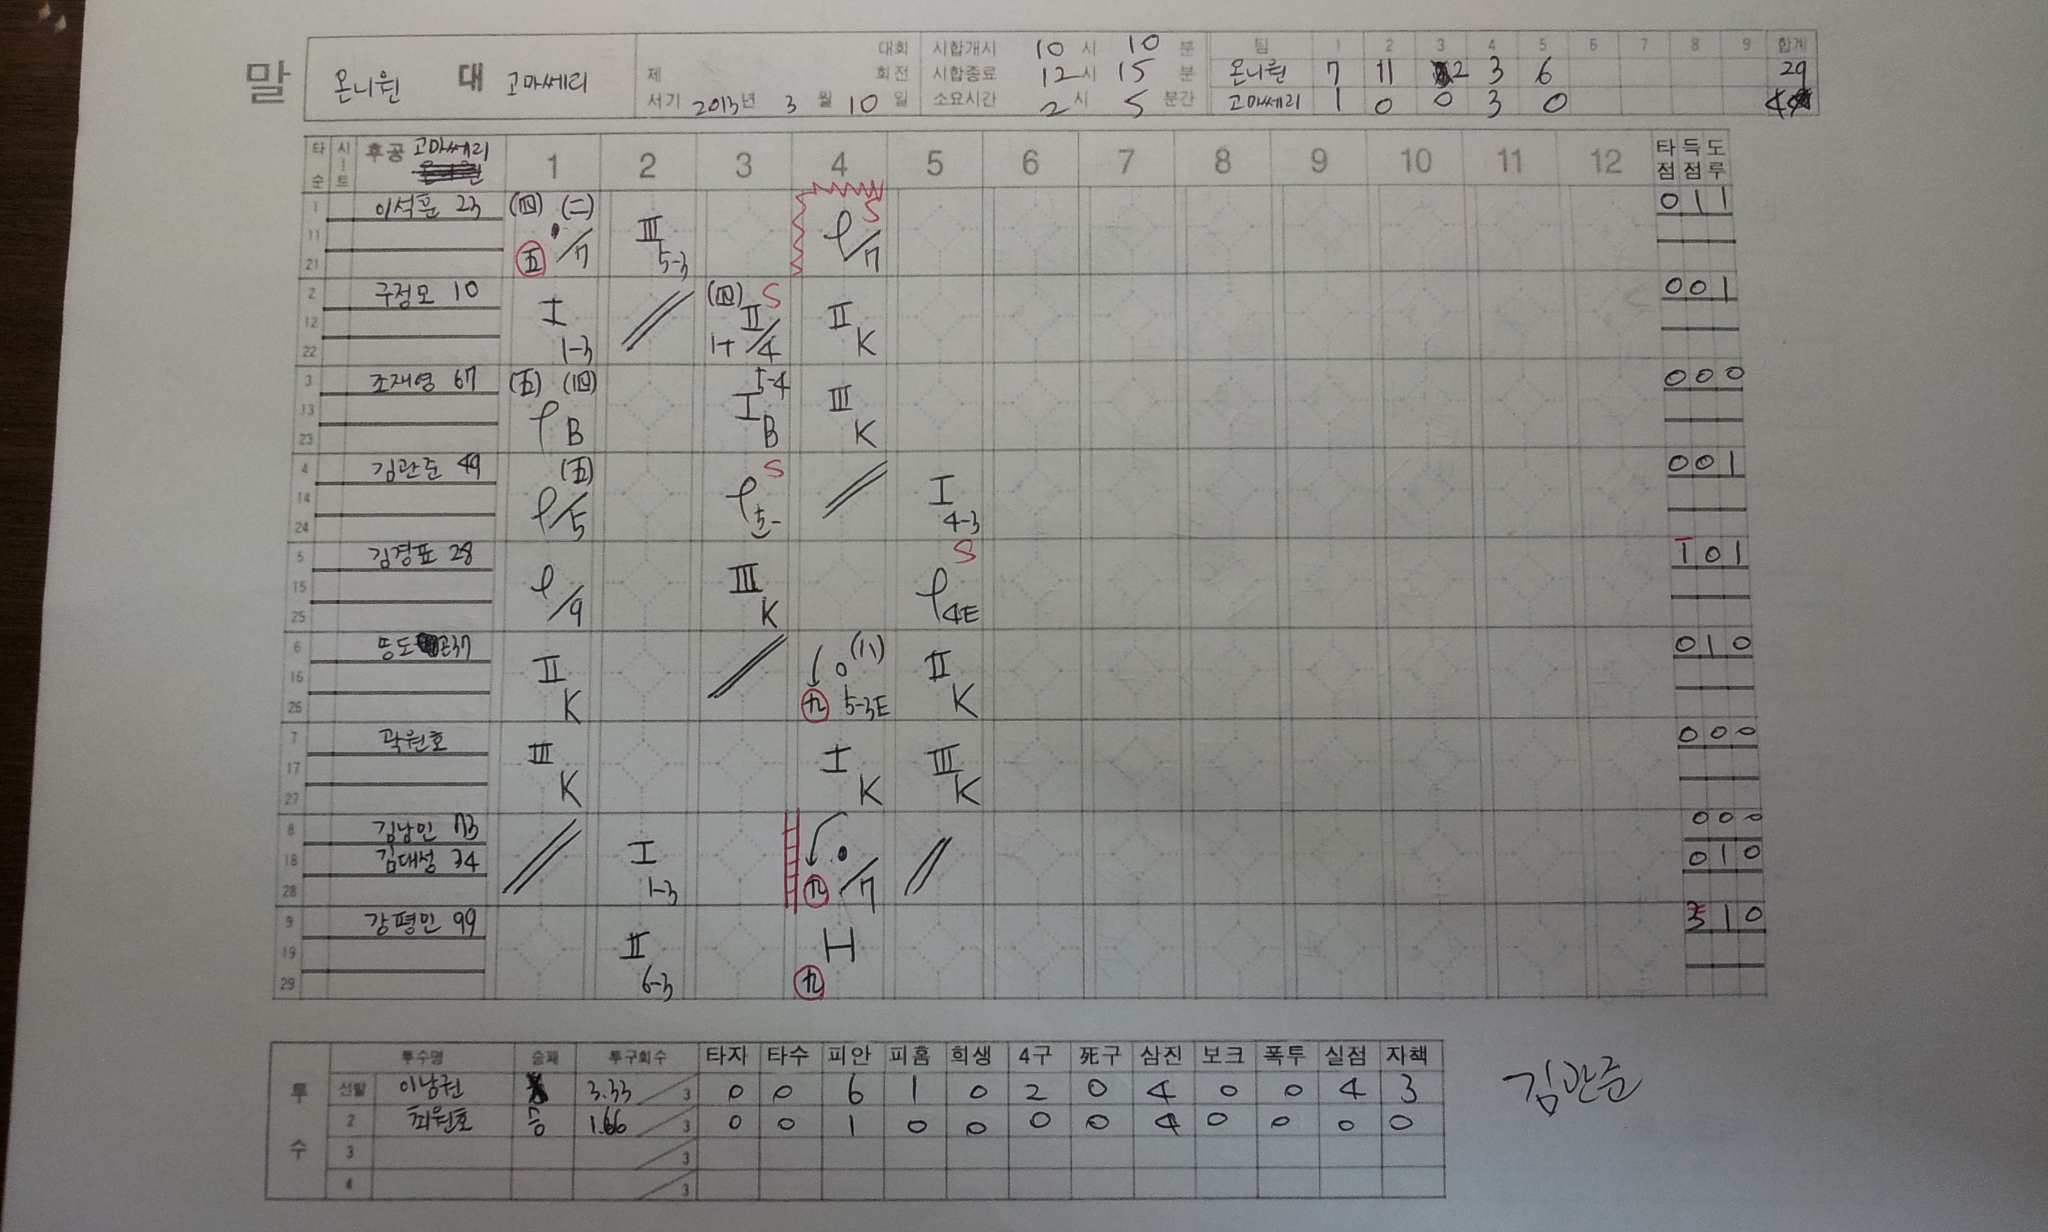 말 온니원 대 고마쎄리
제 대회 회전
서기 2013년 3월 10일
시합개시 10시 10분
시합종료 12시 15분
소요시간 2시 5분간
팀 1 2 3 4 5 6 7 8 9 합계
온니원 7 11 2 3 6 29
고마쎄리 1 0 0 3 0 4
타순 시트 후공 고마쎄리 1 2 3 4 5 6 7 8 9 10 11 12 타점 득점 도루
1 11 21 이석훈 23 (四) (二) 五 /7 III 5-3 S /7 0 1 1
2 12 22 구정모 10 I 1-3 (四) S II 1+ /4 II K 0 0 1
3 13 23 조재영 67 (五) (四) B 5-4 I B III K 0 0 0
4 14 24 김관준 49 (五) /5 S 5- I 4-3 0 0 1
5 15 25 김경표 28 /9 III K S 4E 1 0 1
6 16 26 37 II K (八) 九 5-3E II K 0 1 0
7 17 27 곽원호 III K I K III K 0 0 0
8 18 28 김남민 73 I 1-3 九 /7 0 0 0
김대성 34 0 1 0
9 19 29 강평민 99 II 6-3 H 九 3 1 0
투수 투수명 승패 투구회수 타자 타수 피안 피홈 희생 4구 死구 삼진 보크 폭투 실점 자책
선발 이남권 3.33 /3 0 0 6 1 0 2 0 4 0 0 4 3
2 최원호 승 1.66 /3 0 0 1 0 0 0 0 4 0 0 0 0
3 /3
4 /3
김관준